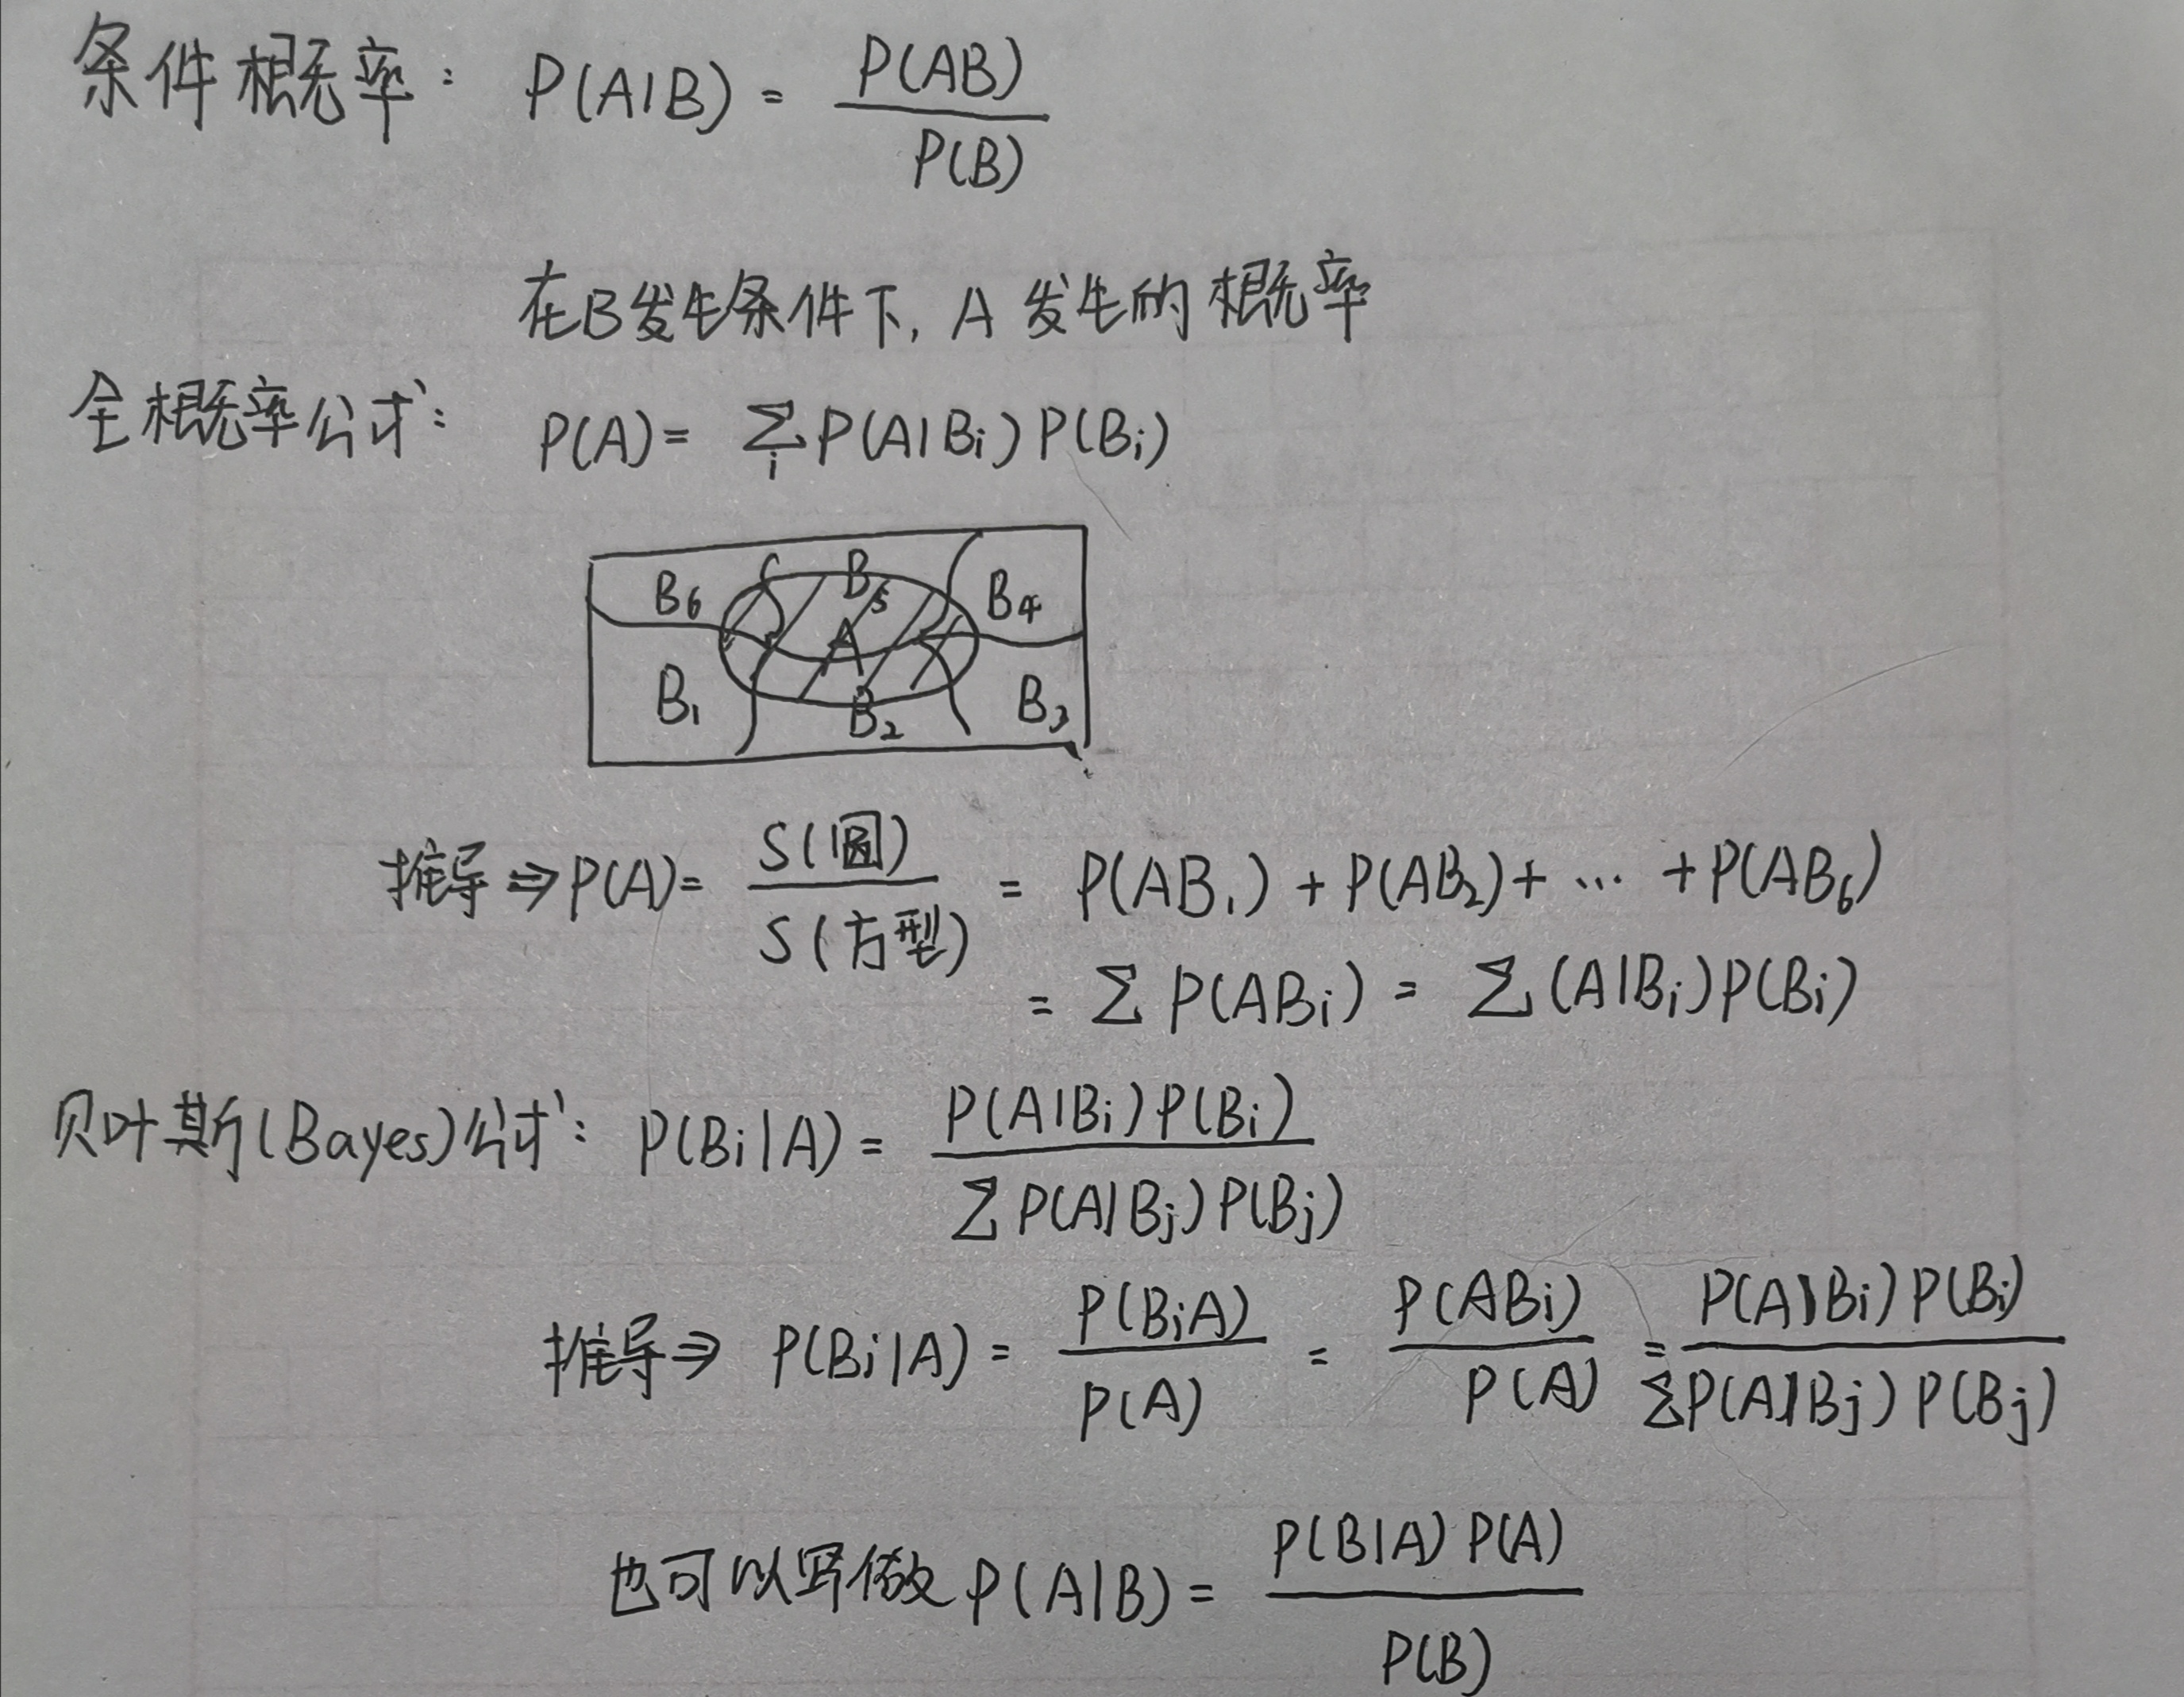 条件概率: P(A|B) = P(AB) / P(B)
在B发生条件下, A 发生的概率
全概率公式: P(A) = ∑_i P(A|B_i) P(B_i)
B_6 B_5 B_4
A
B_1 B_2 B_3
推导 ⇒ P(A) = S(圆) / S(方型) = P(AB_1) + P(AB_2) + … + P(AB_6)
= ∑ P(AB_i) = ∑ (A|B_i) P(B_i)
贝叶斯(Bayes)公式: P(B_i|A) = P(A|B_i) P(B_i) / ∑ P(A|B_j) P(B_j)
推导 ⇒ P(B_i|A) = P(B_iA) / P(A) = P(AB_i) / P(A) = P(A|B_i) P(B_i) / ∑P(A|B_j) P(B_j)
也可以写做 P(A|B) = P(B|A) P(A) / P(B)